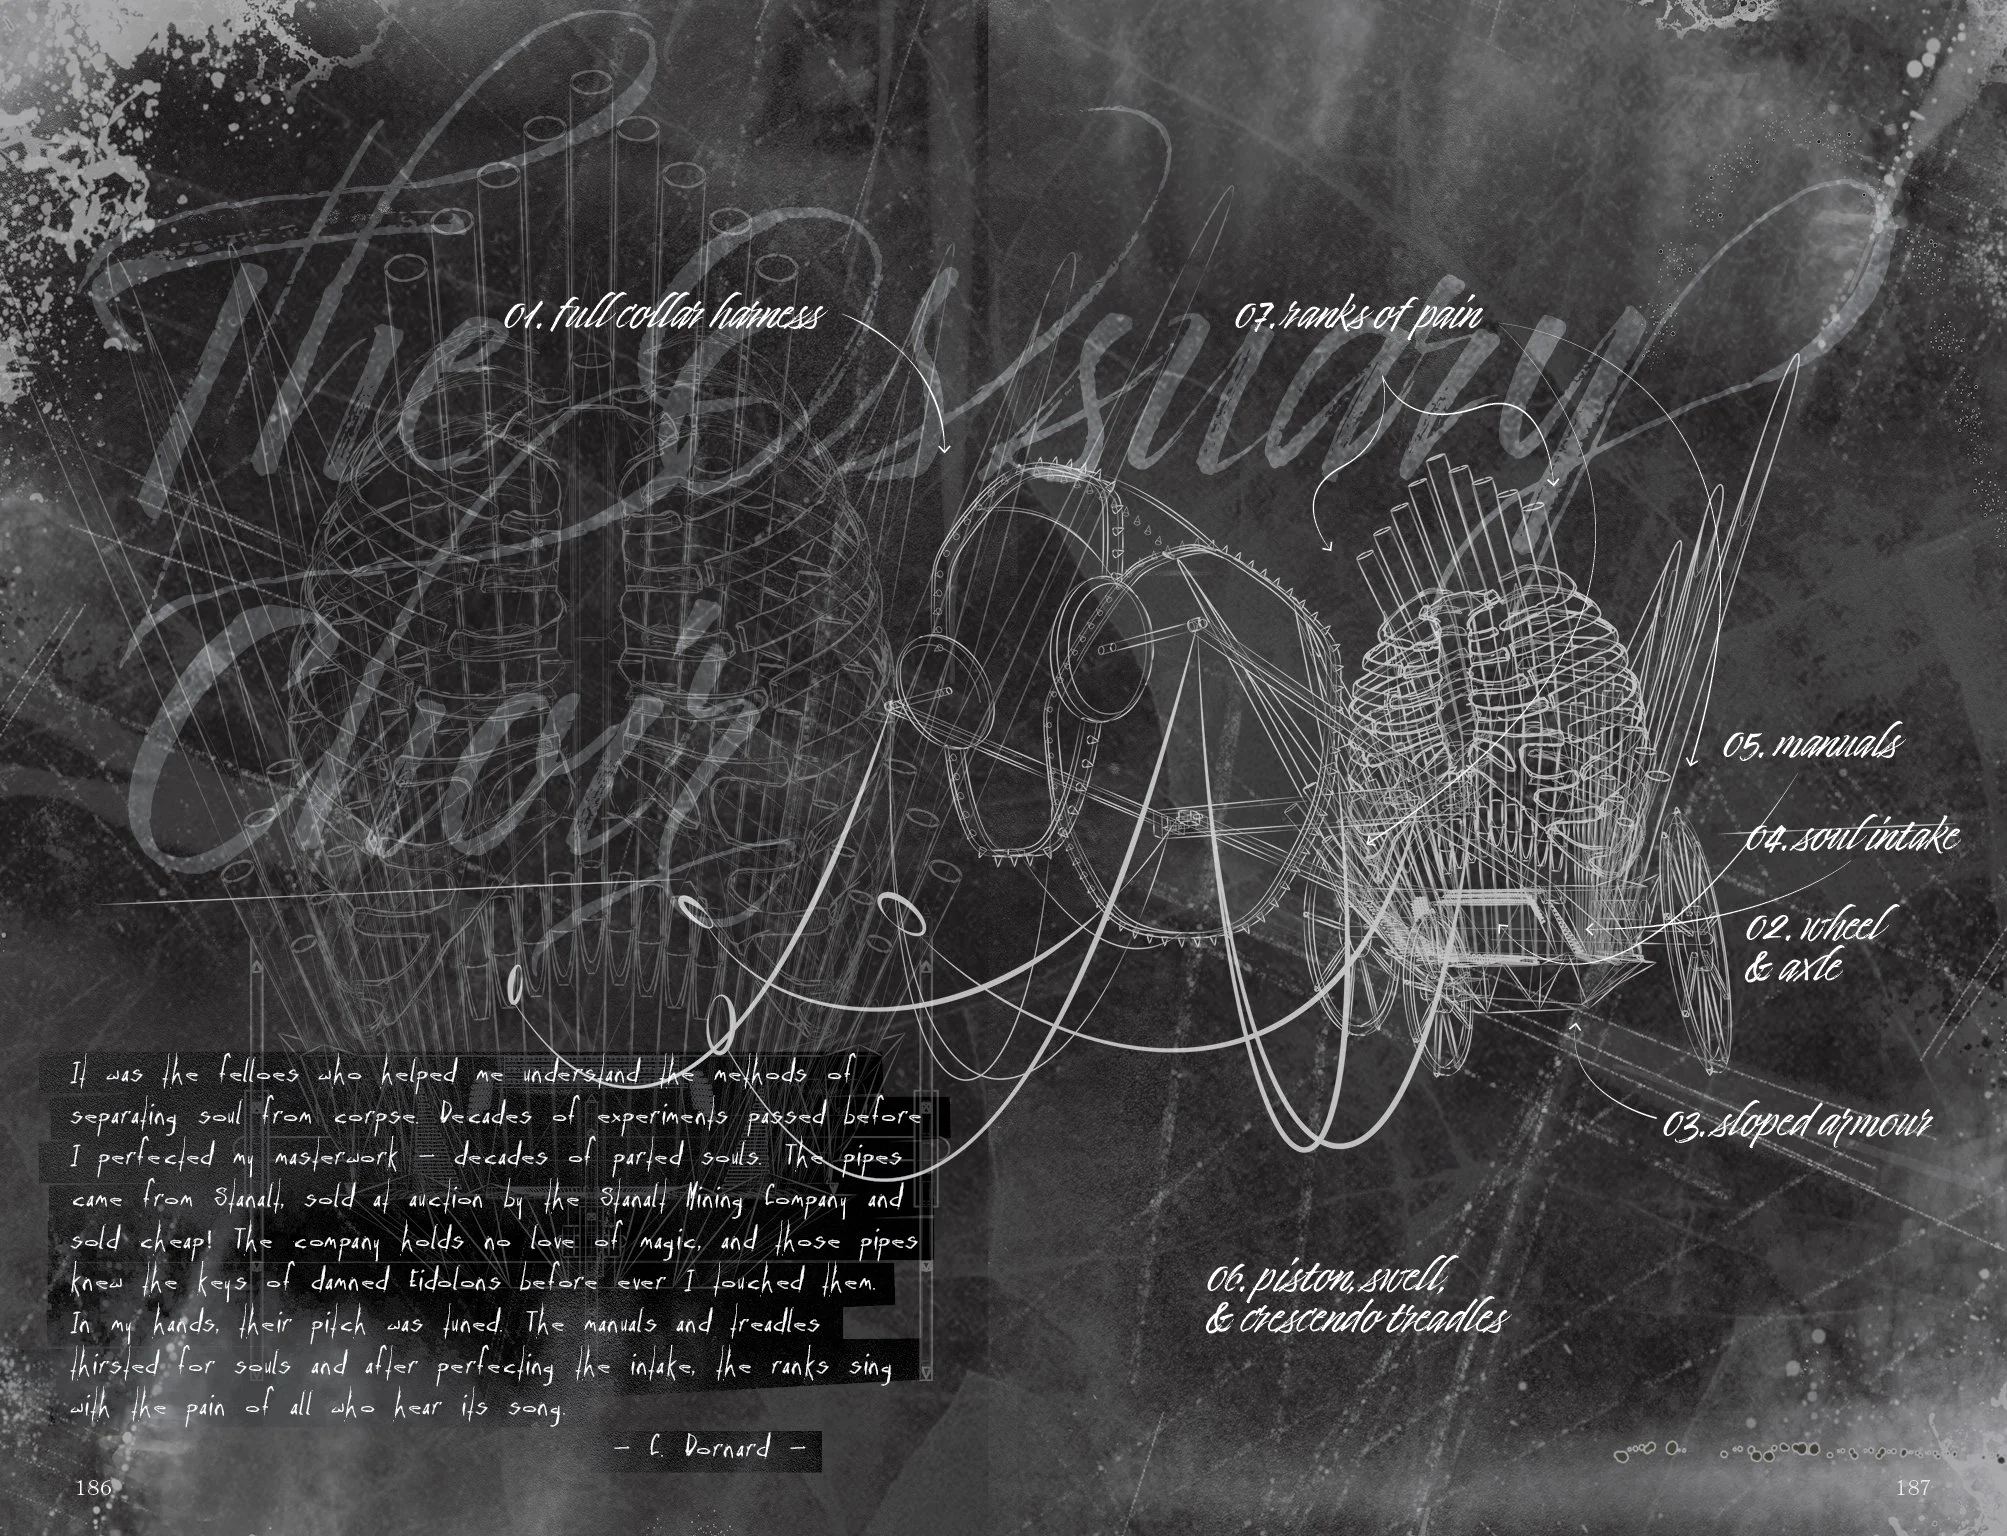 The Ossuary
Choir
01. full collar harness
07. ranks of pain
05. manuals
04. soul intake
02. wheel
& axle
03. sloped armour
06. piston, swell,
& crescendo treadles
It was the felloes who helped me understand the methods of
separating soul from corpse. Decades of experiments passed before
I perfected my masterwork – decades of parted souls. The pipes
came from Stanalt, sold at auction by the Stanalt Mining Company and
sold cheap! The company holds no love of magic, and those pipes
knew the keys of damned Eidolons before ever I touched them.
In my hands, their pitch was tuned. The manuals and treadles
thirsted for souls and after perfecting the intake, the ranks sing
with the pain of all who hear its song.
– C. Dornard –
186
187